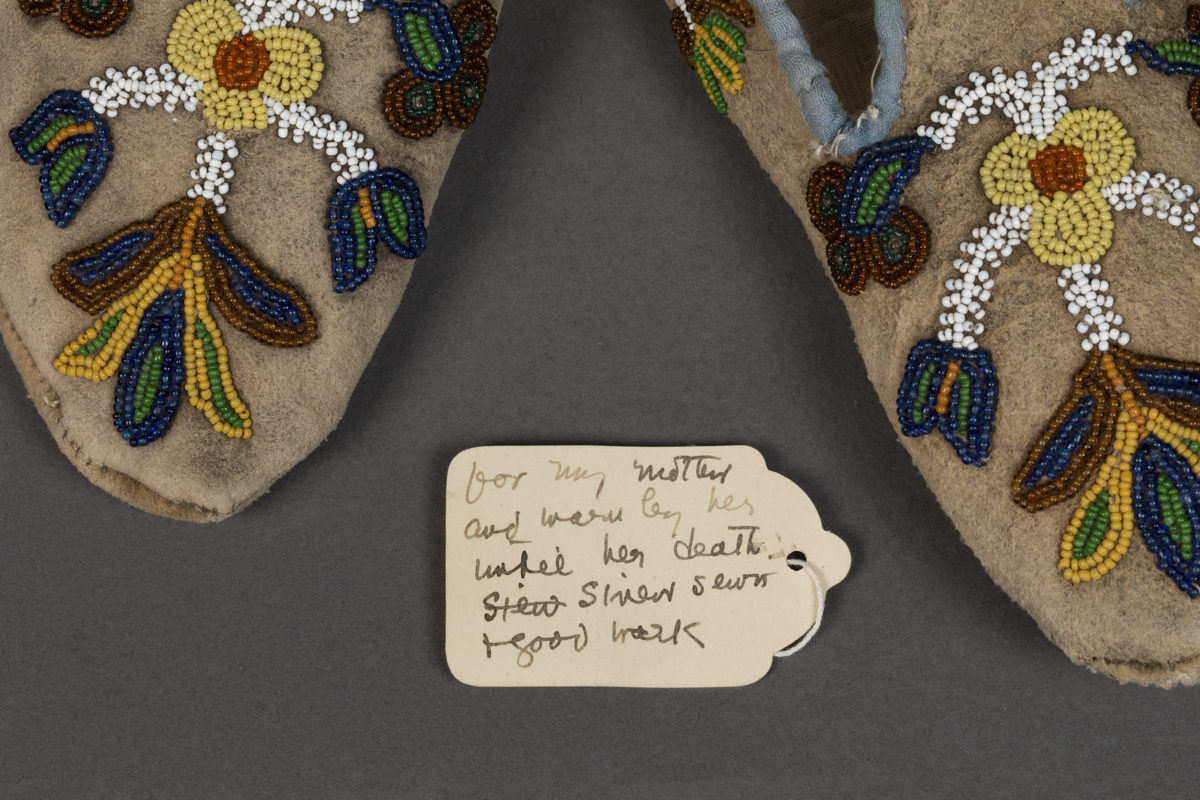 for my mother
and warn by her
until her death.
Siew Sinew sewn
+ good work